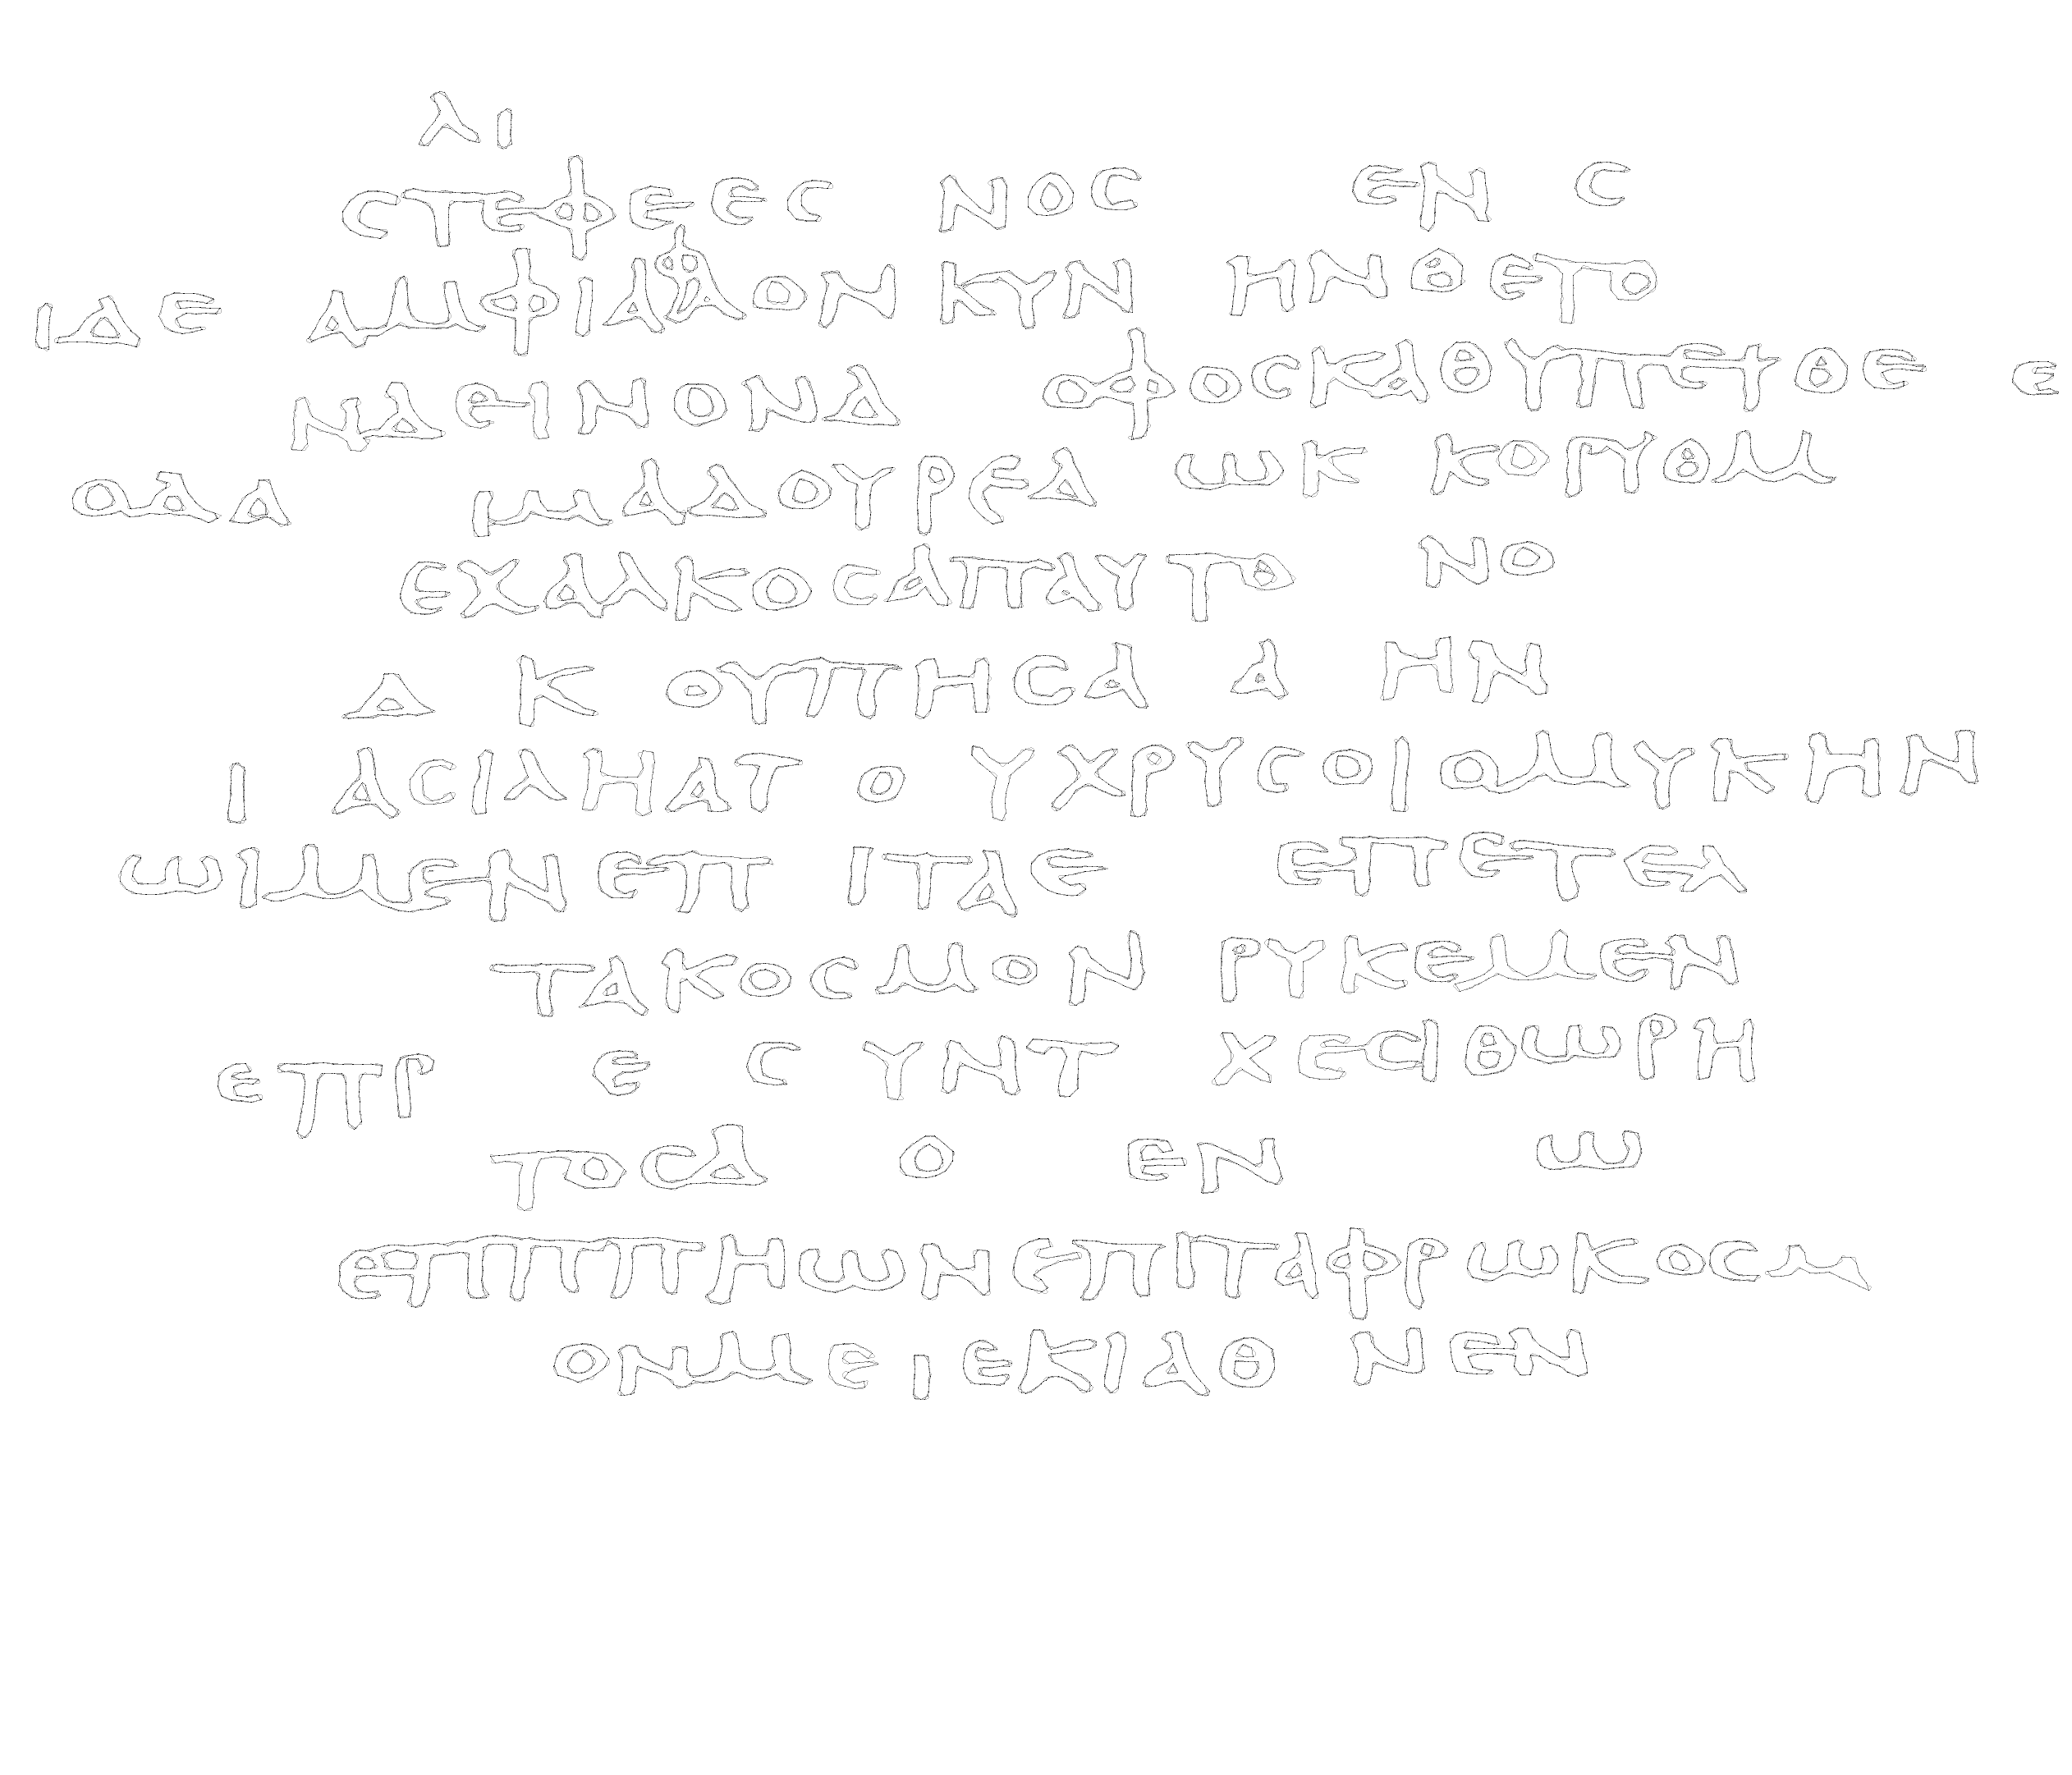 λι
στεφεες νος εν ς
ιδε αμφιαφλον κυν ηνθετο
νδεινονα οφοσκαθυπετθε ε
οδα μαδουρεα ωκ κοπυθμ
εχαλκοσαπαυτο νο
δ κ ουπησα α ην
ι ασιληατ ο υχρυσοιομυκην
ωιμενεπ ιταε επετελ
τακοσμον ρυκεμεν
επρ ε ς υντ χεσιθωρη
τοσα ο εν ω
επππηωνεπιταφρωκοσμ
ονμειεκιαθ νεν